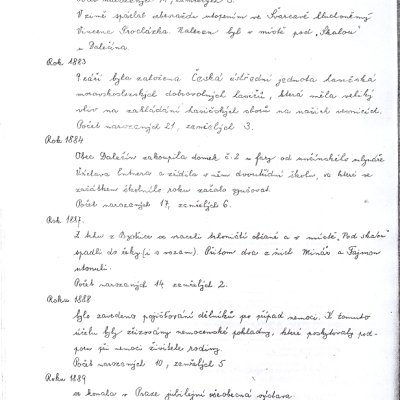 Počet narozených 17, zemřelých 3.
V zimě spáchal sebevraždu utopením ve Švarcavě hluchoněmý
Vincenc Procházka. Nalezen byl v místě pod „Skalou"
u Dalečína.
Rok 1883
Péčí byla založena Česká ústřední jednota hasičská
moravskoslezských dobrovolných hasičů, která měla veliký
vliv na zakládání hasičských sborů na našich vesnicích.
Počet narozených 21, zemřelých 3.
Rok 1884
Obec Dalečín zakoupila domek č. 2 u fary od unčínského mlynáře
Václava Entnera a zřídila v něm dvoutřídní školu, ve které se
začátkem školního roku začalo vyučovat.
Počet narozených 17, zemřelých 6.
Rok 1887.
Z trhu z Bystřice se vraceli občané a v místě „Pod skalou"
spadli do řeky (i s vozem). Přitom dva z nich Minář a Fajmon
utonuli.
Počet narozených 14 zemřelých 2.
Roku 1888
bylo zavedeno pojišťování dělníků pro případ nemoci. K tomuto
účelu byly zřizovány nemocenské pokladny, které poskytovaly pod-
poru při nemoci živitele rodiny.
Počet narozených 10, zemřelých 5
Roku 1889
se konala v Praze jubilejní všeobecná výstava.